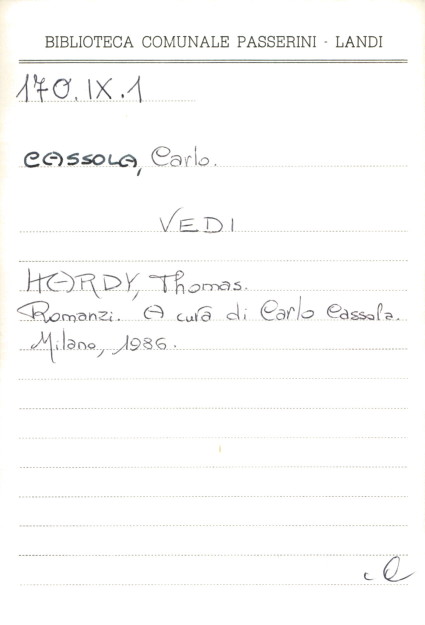 BIBLIOTECA COMUNALE PASSERINI - LANDI
170.IX.1
CASSOLA, Carlo.
VEDI
HARDY, Thomas.
Romanzi. A cura di Carlo Cassola.
Milano, 1986.